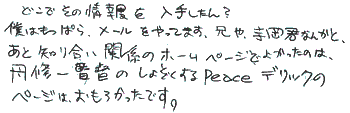 どこでその情報を入手したん?
僕はもっぱら、メールをやってます。兄や、寺田君なんかと、
あと知り合い関係のホームページでよかったのは、
円修一督督のしょぞくするPeaceデリックの
ページは、おもろかったです。